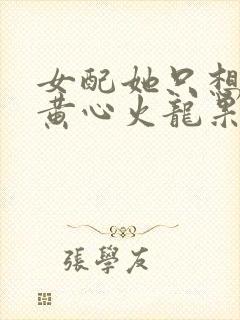 女配她只想
黄心火龍果
張學友